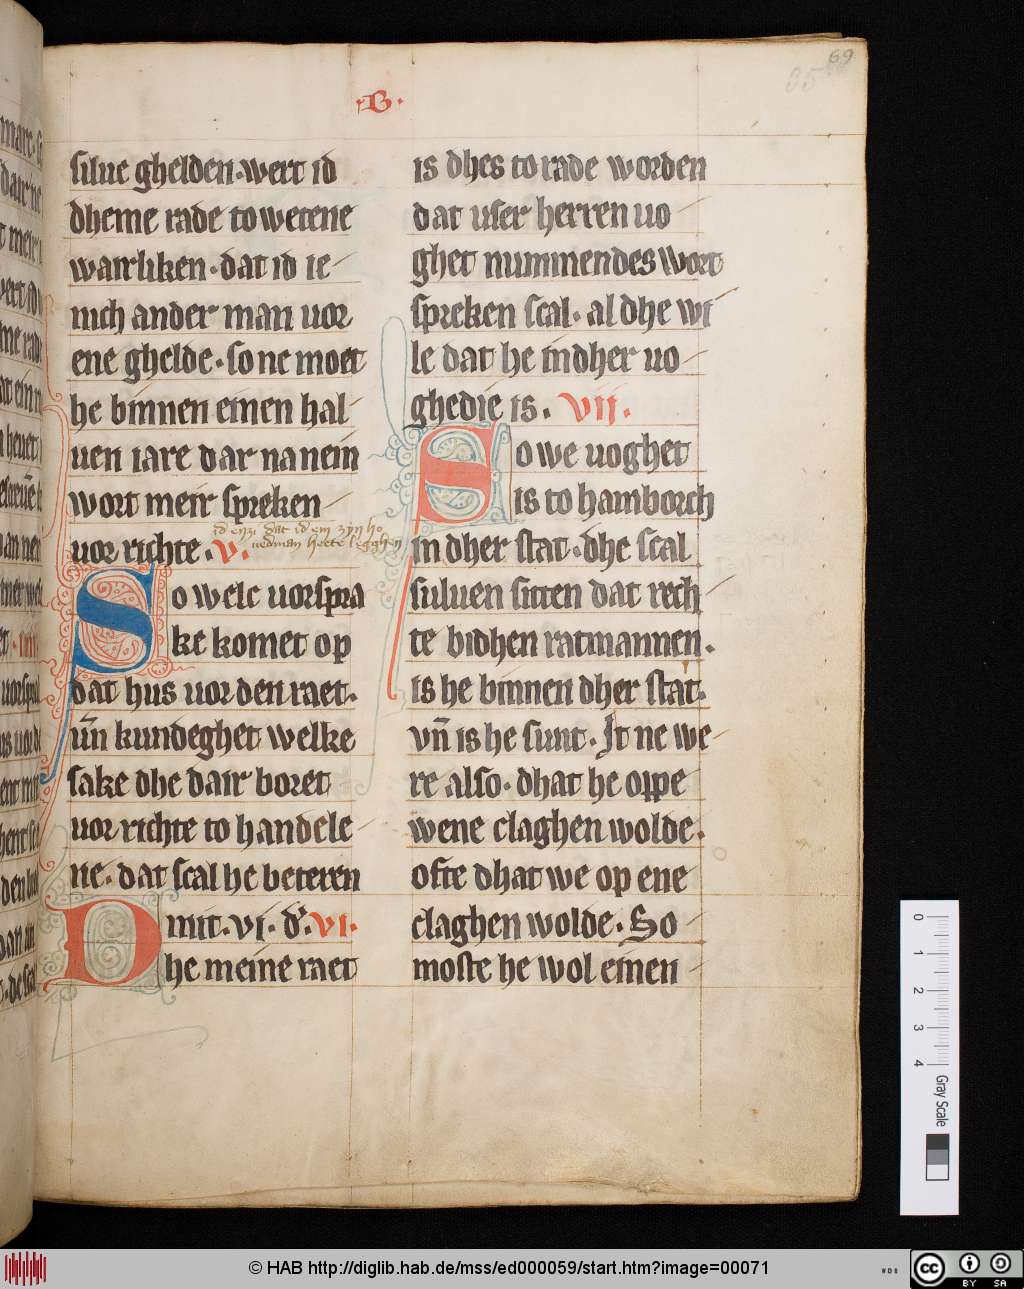 69
35
·B·
silue ghelden·wert id
dheme rade to wetene
wairliken·dat id ie
nich ander man uor
ene ghelde·so ne moet
he binnen einen hal
uen iare dar na nein
wort meir spreken
id enzi dat id em zyn ho
uor richte·V·
uedman hete legghen
So welc uorspra
ke komet op
dat hus uor den raet·
un̄ kundeghet welke
sake dhe dair boret
uor richte to handele
ne·dat scal he beteren
mit·vi·d'·VI·
Dhe meine raet
is dhes to rade worden
dat user herren uo
ghet nummendes wort
spreken scal·al dhe wi
le dat he in dher uo
ghedie is·VII·
So we uoghet
is to hamborch
in dher stat·dhe scal
suluen sitten dat rech
te bi dhen ratmannen·
is he binnen dher stat·
vn̄ is he sunt·It ne we
re also·dhat he oppe
wene claghen wolde·
ofte dhat we op ene
claghen wolde·So
moste he wol einen
0 1 2 3 4 Gray Scale
© HAB http://diglib.hab.de/mss/ed000059/start.htm?image=00071
WDB
cc BY SA